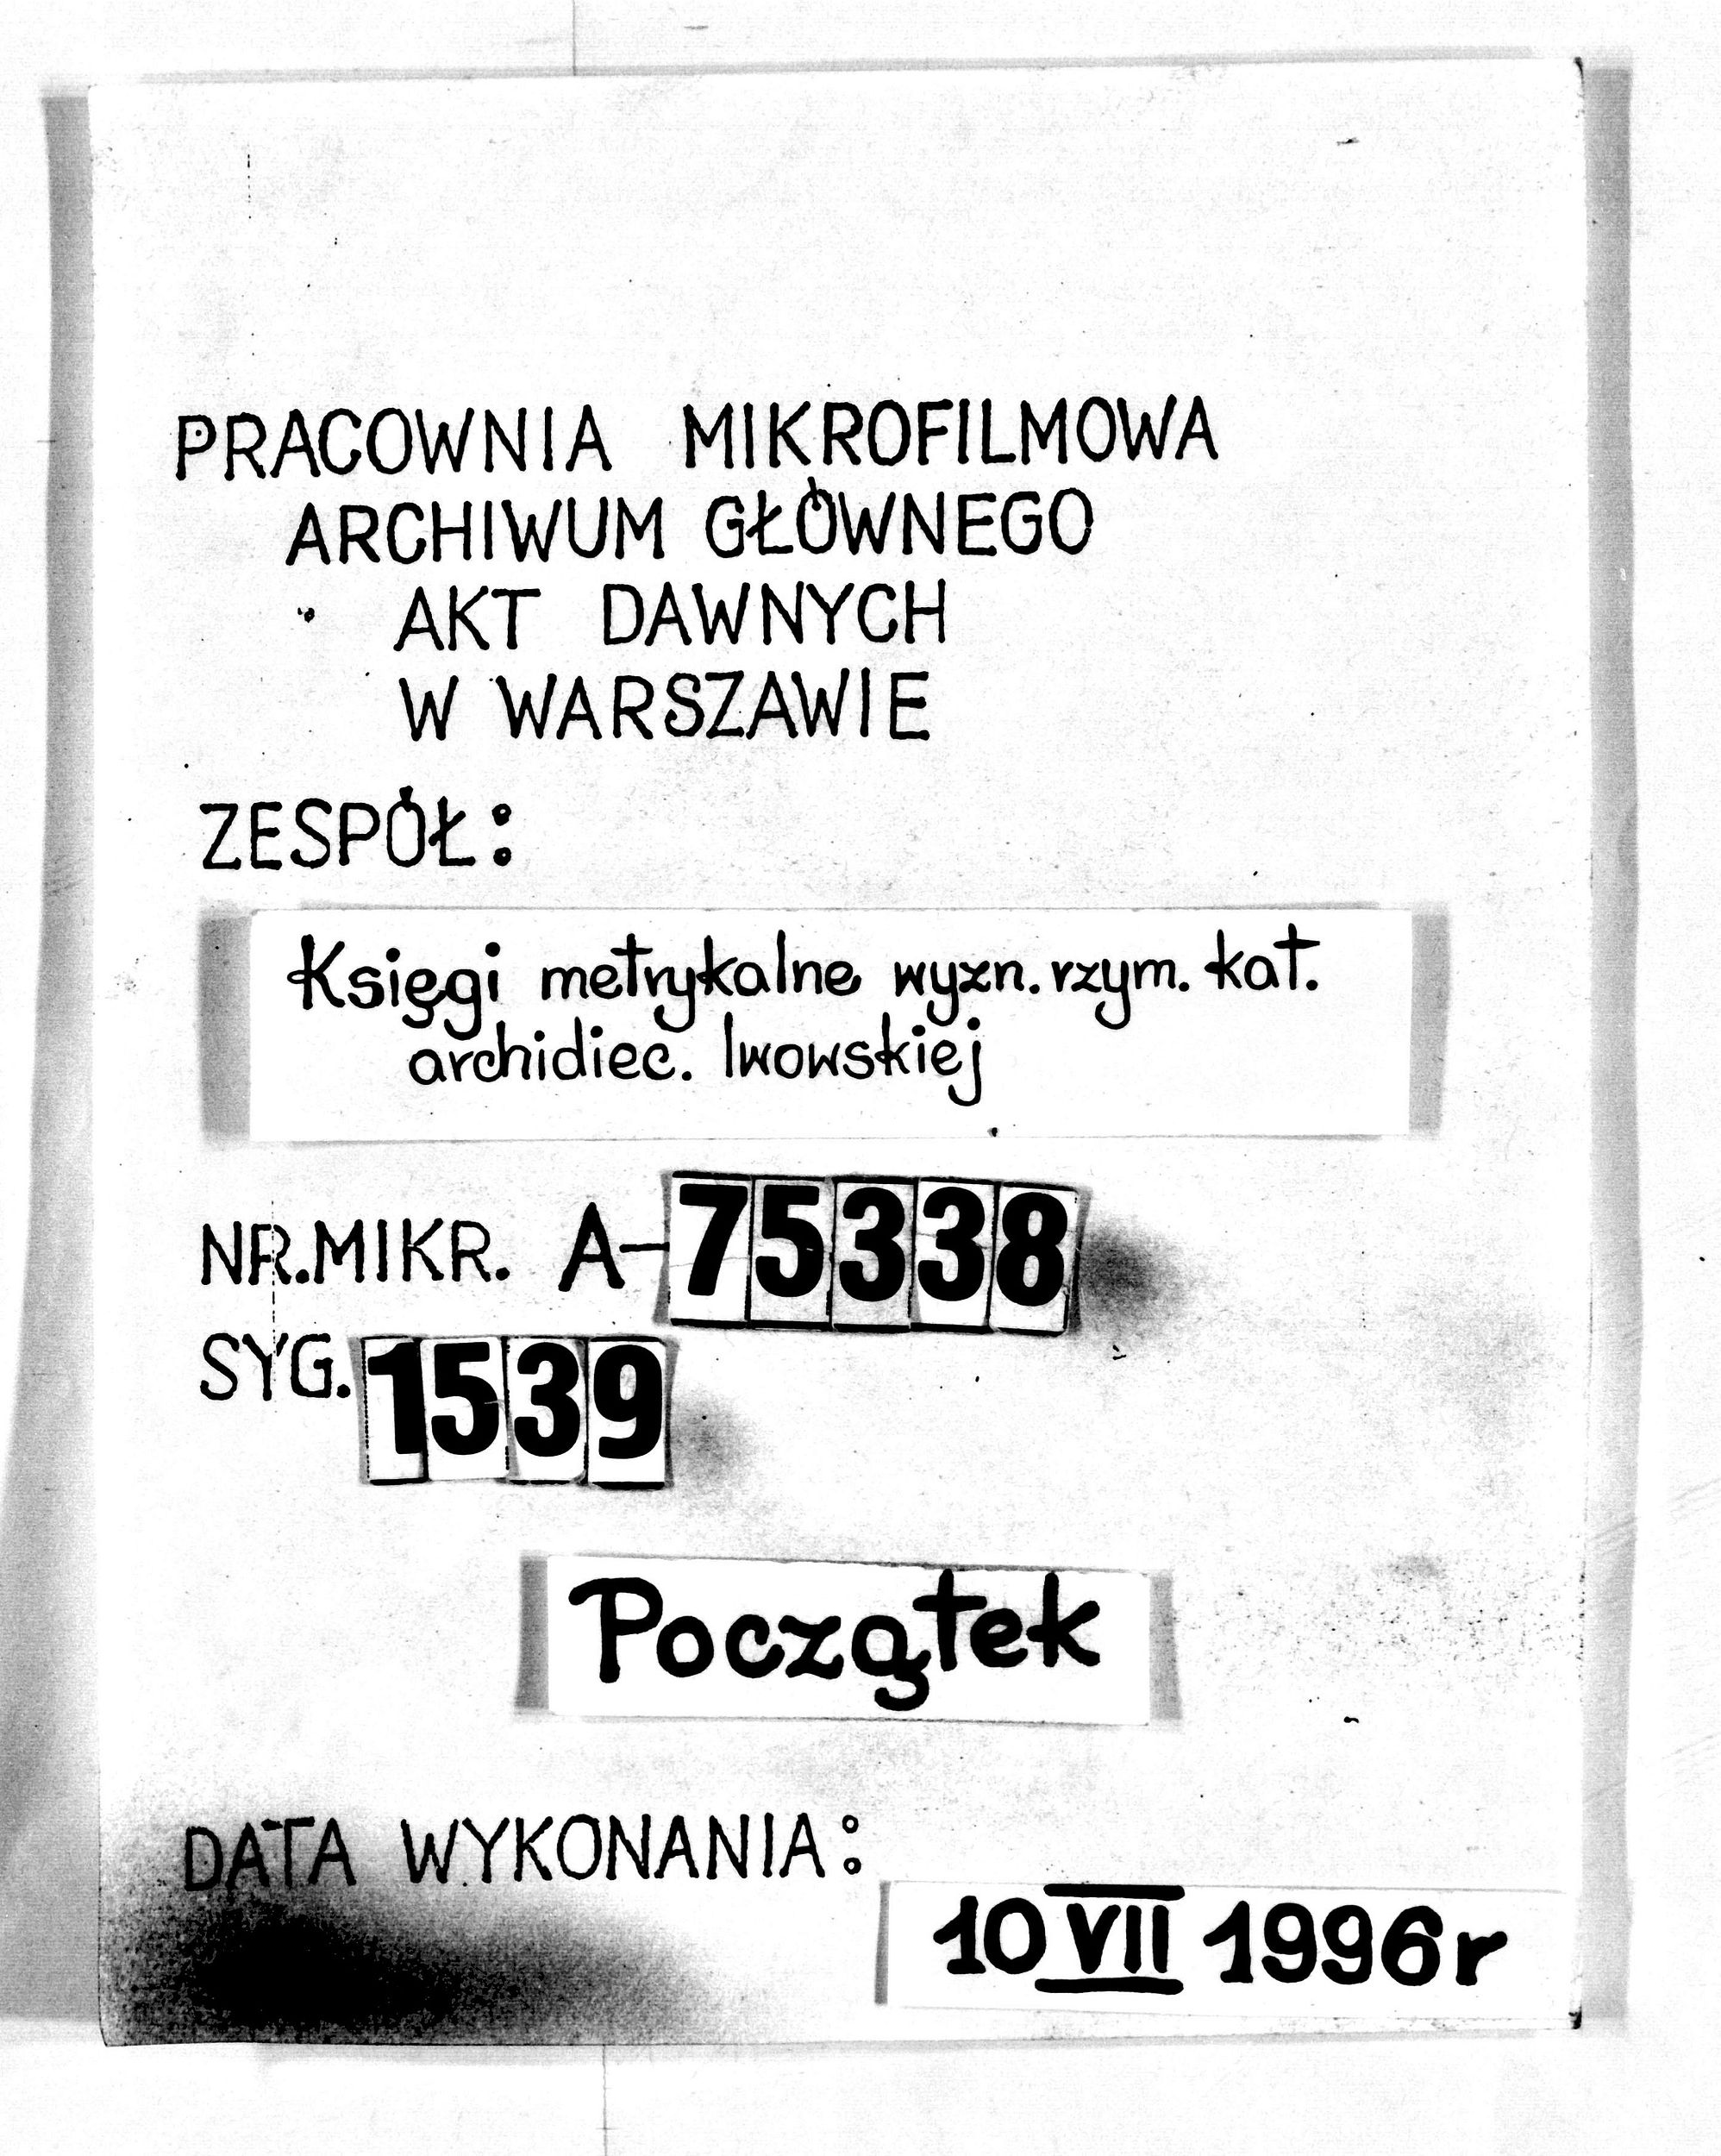 PRACOWNIA MIKROFILMOWA
ARCHIWUM GŁÓWNEGO
AKT DAWNYCH
W WARSZAWIE
ZESPÓŁ:
Księgi metrykalne wyzn. rzym. kat.
archidiec. lwowskiej
NR.MIKR. A-75338
SYG. 1539
Początek
DATA WYKONANIA:
10 VII 1996r